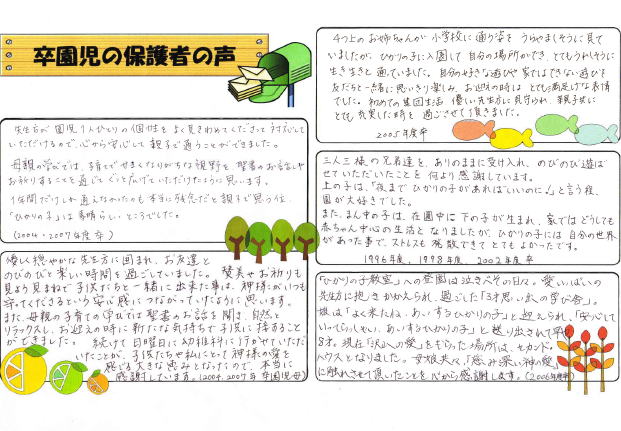 卒園児の保護者の声
先生方が園児1人ひとりの個性をよく見きわめてくださって対応して
いただけるので、心から安心して親子で通うことができました。
母親の学びでは、子育てでせまくなりがちな視野を聖書のお話しや
お祈りすることを通して、ぐっと広げていただけたように思います。
1年間だけしか通えなかったのも本当に残念だと親子で思う位、
「ひかりの子」は素晴らしいところでした。
(2004・2007年度卒)
優しく穏やかな先生方に囲まれ、お友達と
のびのびと楽しい時間を過ごしていました。賛美やお祈りも
見よう見まねで子供たちと一緒に出来た事は、神様がいつも
守ってくださるという安心感につながっていけたように思います。
また、母親の子育ての学びでは聖書のお話を聞き、自然と
リラックスし、お迎えの時に新たな気持ちで子供に接すること
ができました。続けて日曜日に幼稚科に行かせていただ
いたことが、子供たちや私にとって神様の愛を
感じる大きな恵みとなったので、本当に
感謝しています。(2004,2007年卒園児母)
4つ上のお姉ちゃんが小学校に通う姿をうらやましそうに見て
いましたが、ひかりの子に入園して自分の場所ができ、とてもうれしそうに
生き生きと通っていました。自分の好きな遊びや家ではできない遊びを
友だちと一緒に思いきり楽しみ、お迎えの時はとても満足げな表情
でした。初めての集団生活 優しい先生方に見守られ、親子共に
とても充実した時を過ごさせて頂きました。
2005年度卒
三人三様の兄弟達を、ありのままに受け入れ、のびのび遊ば
せていただいたことを何より感謝しています。
上の子は、「夜までひかりの子があればいいのに。」と言う程、
園が大好きでした。
また、まん中の子は、在園中は下の子が生まれ、家ではどうしても
赤ちゃん中心の生活となりましたが、ひかりの子には自分の世界
があった事で、ストレスも発散できてとてもよかったです。
1996年度, 1998年度, 2002年度卒
「ひかりの子教室」への登園は泣きべその日々。愛いっぱいの
先生方に抱きかかえられ、過ごした「3才思い出の学び舎」。
娘は「よく来たね、あいすうひかりの子」と迎えられ、「安心して
いってらっしゃい、あいすうひかりの子」と送り出されて早
8才。現在「沢山への愛」をもらった場所は、セカンド
ハウスとなりました。母娘共々、「恵み深い神の愛」
に触れさせて頂いたことを心から感謝します。(2006年度卒)